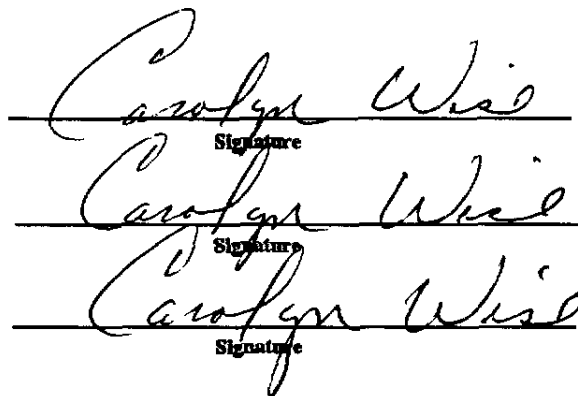 Carolyn Wise
Signature
Carolyn Wise
Signature
Carolyn Wise
Signature